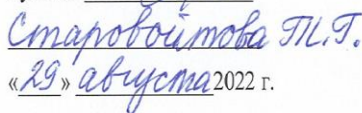 Старовойтова Т.Г.
«29» августа 2022 г.